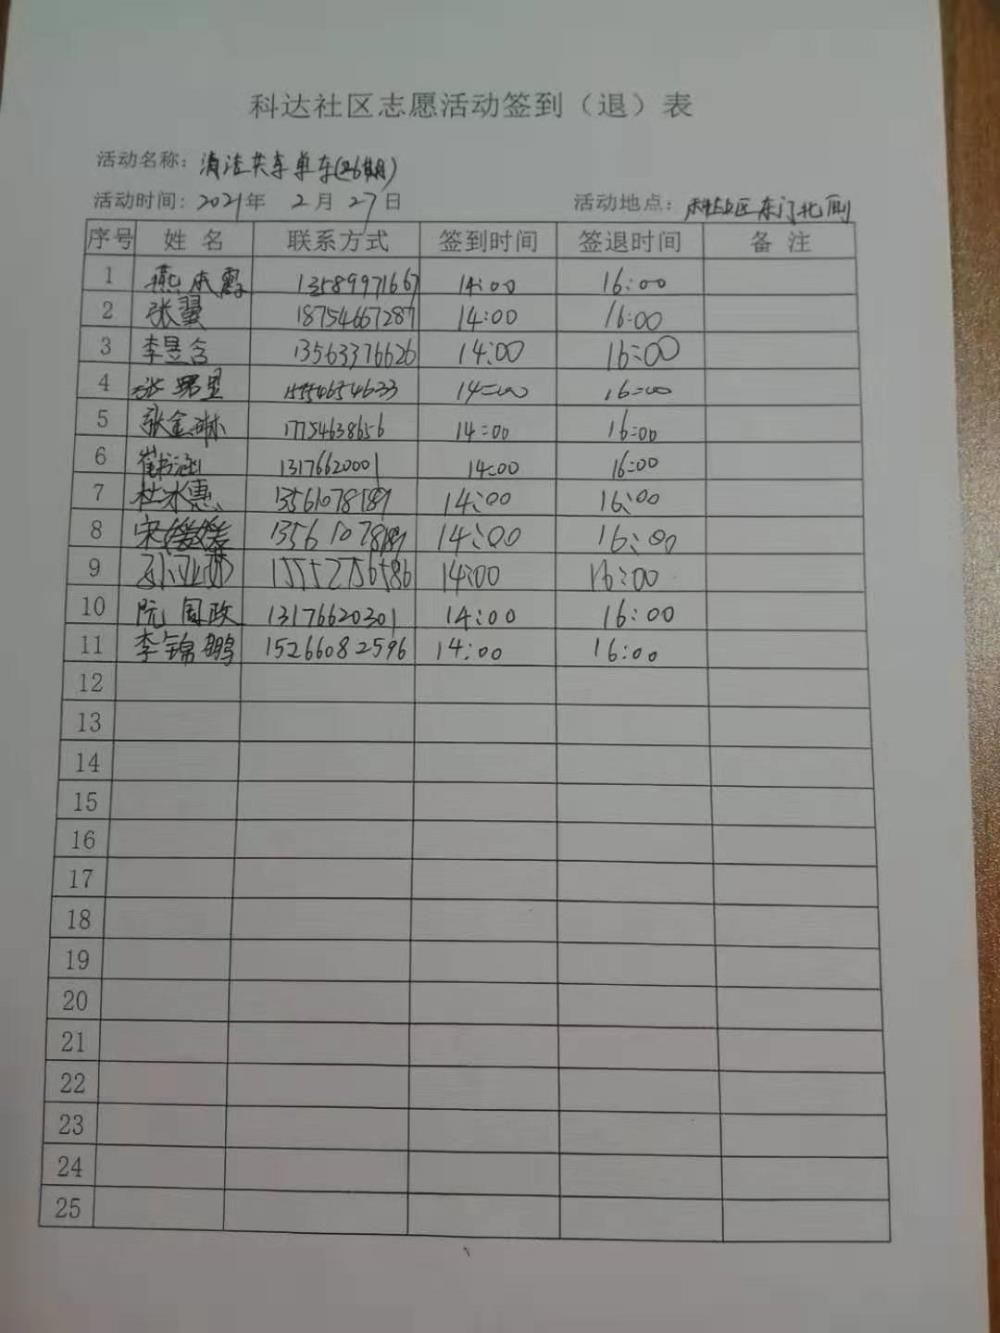 科达社区志愿活动签到（退）表
活动名称：清洁共享单车(26期)
活动时间：2021年 2月 27日 活动地点：科达社区东门北侧
序号 姓名 联系方式 签到时间 签退时间 备注
1 燕本霞 13589971667 14:00 16:00
2 张翼 18754667287 14:00 16:00
3 李昱含 13563376626 14:00 16:00
4 张 15554654633 14:00 16:00
5 张金琳 17754638656 14:00 16:00
6 崔书涵 13176620001 14:00 16:00
7 杜冰惠 13561078189 14:00 16:00
8 宋媛媛 13561078189 14:00 16:00
9 孙亚 15552756586 14:00 16:00
10 阮国政 13176620301 14:00 16:00
11 李锦鹏 15266082596 14:00 16:00
12
13
14
15
16
17
18
19
20
21
22
23
24
25